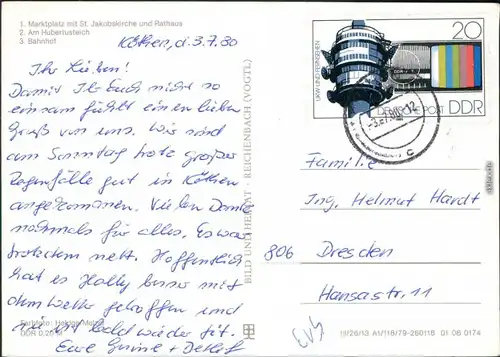 1. Marktplatz mit St. Jakobskirche und Rathaus
2. Am Hubertusteich
3. Bahnhof
Köthen, d. 3.7.80
Ihr Lieben!
Damit Ihr Euch nicht so
einsam fühlt einen lieben
Gruß von uns. Wir sind
am Sonntag trotz großer
Regenfälle gut in Köthen
angekommen. Vielen Dank
nochmals für alles. Es war
trotzdem nett. Hoffentlich
hat es Holly besser mit
dem Wetter getroffen und
ist wieder fit.
Eure + Detlef
Farbfoto:
DDR 0,20 M
BILD UND HEIMAT · REICHENBACH (VOGTL)
UKW UND FERNSEHEN
20
DEUTSCHE POST DDR
Familie
Ing. Helmut Hardt
806 Dresden
Hansastr. 11
EVS
A1/118/79-280118 01 06 0174